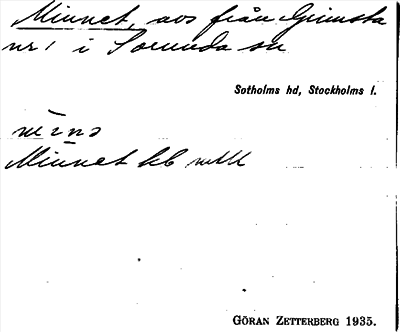 Minnet, avs från Grimsta
nr 1 i Sorunda sn
Sotholms hd, Stockholms l.
Minnet kb
GÖRAN ZETTERBERG 1935.